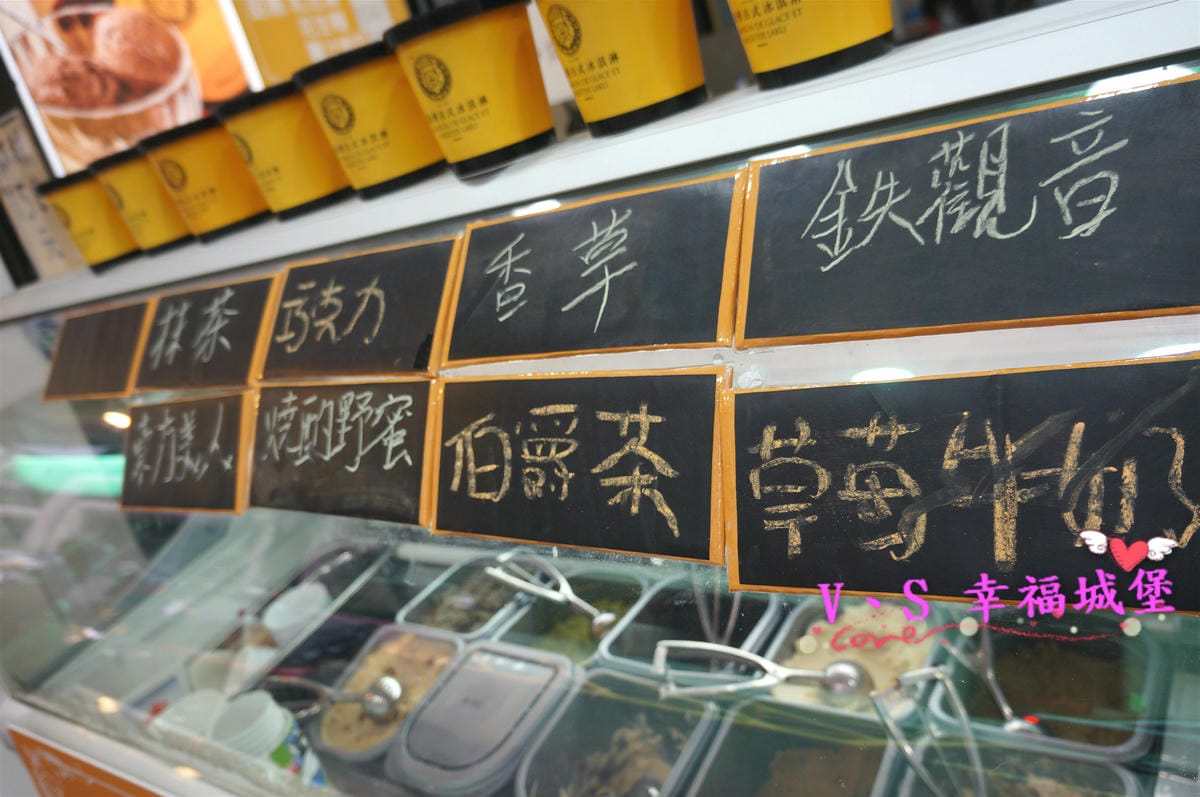 法式冰淇淋
鉄觀音
香草
巧克力
抹茶
東方美人
燒酌野蜜
伯爵茶
草莓牛奶
V、S 幸福城堡
Love